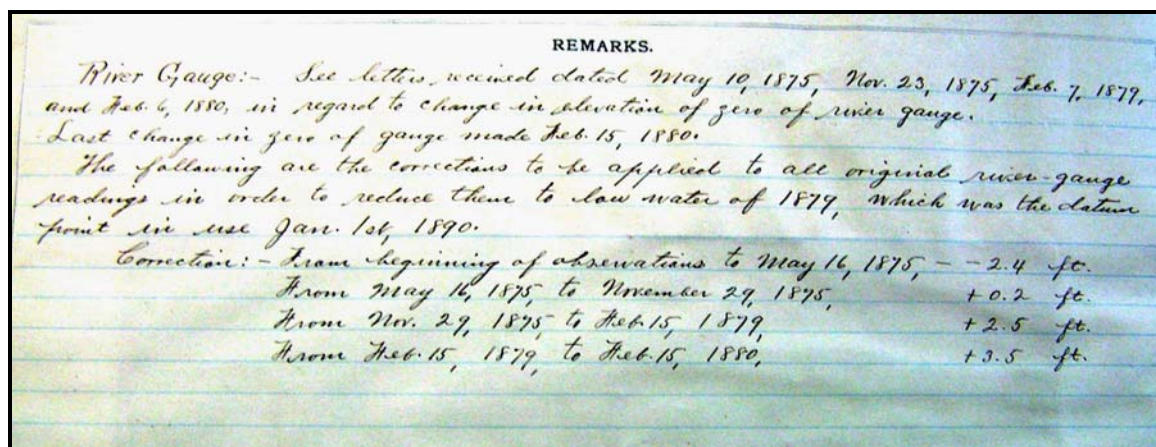 REMARKS.
River Gauge:- See letters received dated May 10, 1875, Nov. 23, 1875, Feb. 7, 1879,
and Feb. 6, 1880, in regard to change in elevation of zero of river gauge.
Last change in zero of gauge made Feb. 15, 1880.
The following are the corrections to be applied to all original river-gauge
readings in order to reduce them to low water of 1879, which was the datum
point in use Jan. 1st, 1890.
Correction:- From beginning of observations to May 16, 1875, - -2.4 ft.
From May 16, 1875, to November 29, 1875, +0.2 ft.
From Nov. 29, 1875 to Feb. 15, 1879, +2.5 ft.
From Feb. 15, 1879, to Feb. 15, 1880, +3.5 ft.